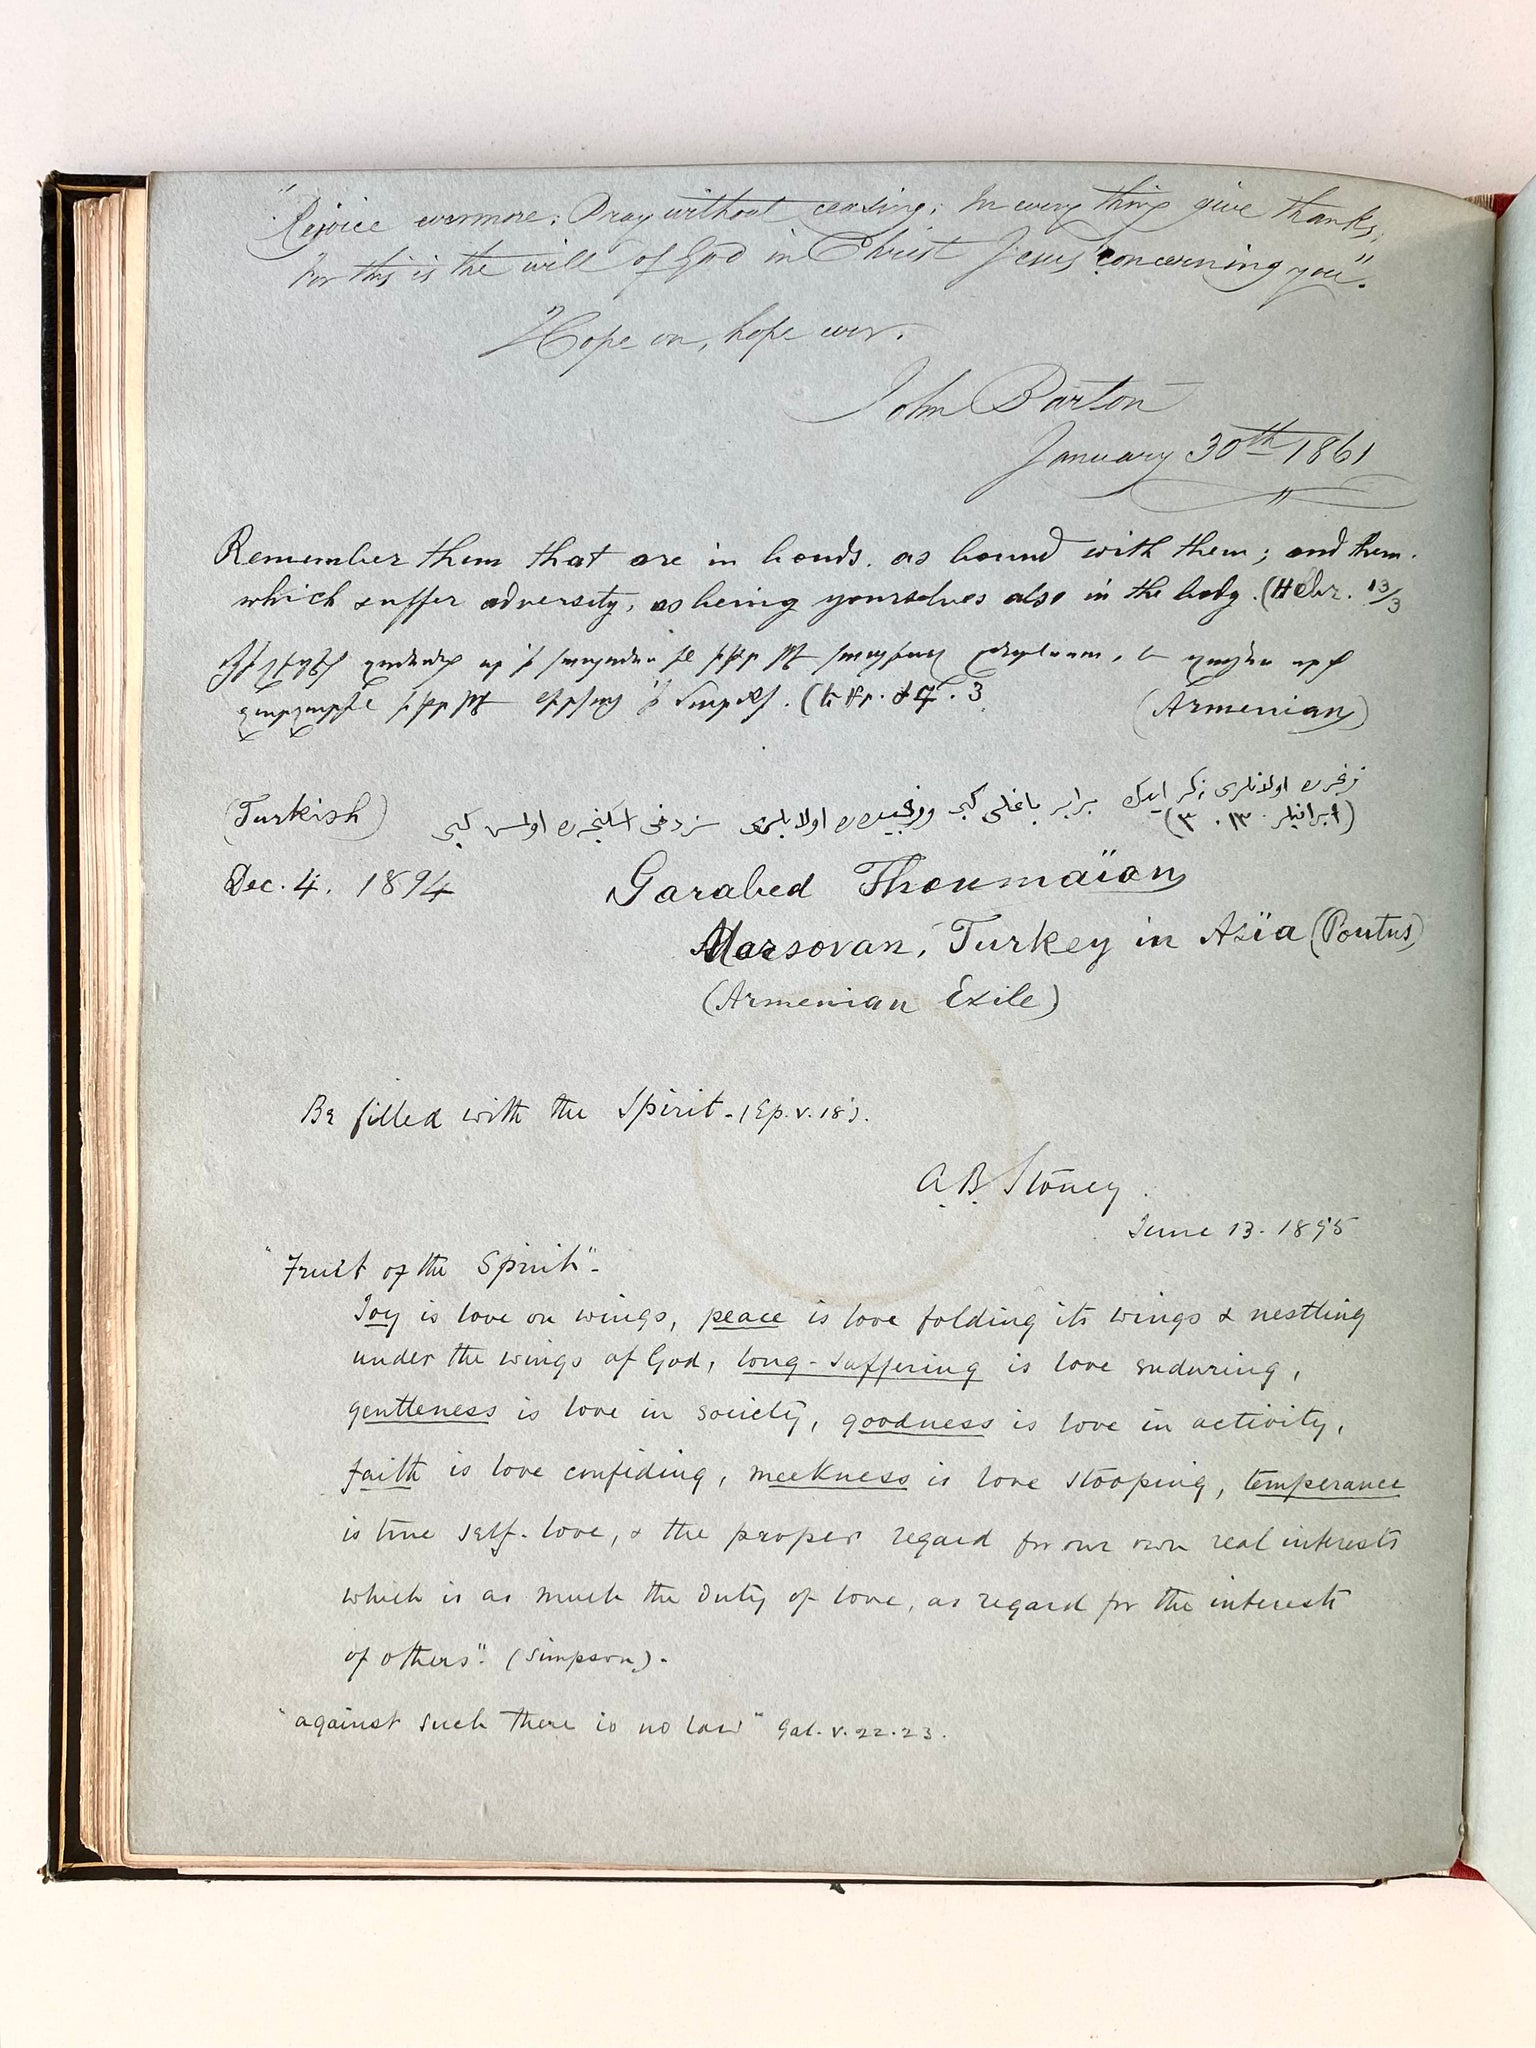 "Rejoice evermore; Pray without ceasing; In every thing give thanks;
for this is the will of God in Christ Jesus concerning you".
Hope on, hope ever.
John Barton
January 30th 1861
Remember them that are in bonds. as bound with them; and them
which suffer adversity, as being yourselves also in the body. (Hebr. 13/3
(Armenian)
(Turkish)
برابر باغلى كبى
(عبرانيلر ١٣. ٣)
Dec. 4. 1894
Garabed Thoumaïan
Marsovan, Turkey in Asïa (Pontus)
(Armenian Exile)
Be filled with the Spirit - (Ep. v. 18).
A. B. Stoney.
June 13. 1895
"Fruit of the Spirit" -
Joy is love on wings, peace is love folding its wings & nestling
under the wings of God, long-suffering is love enduring,
gentleness is love in society, goodness is love in activity,
faith is love confiding, meekness is love stooping, temperance
is true self-love, & the proper regard for our own real interests
which is as much the duty of love, as regard for the interests
of others". (Simpson). -
"against such there is no law" Gal. v. 22. 23.